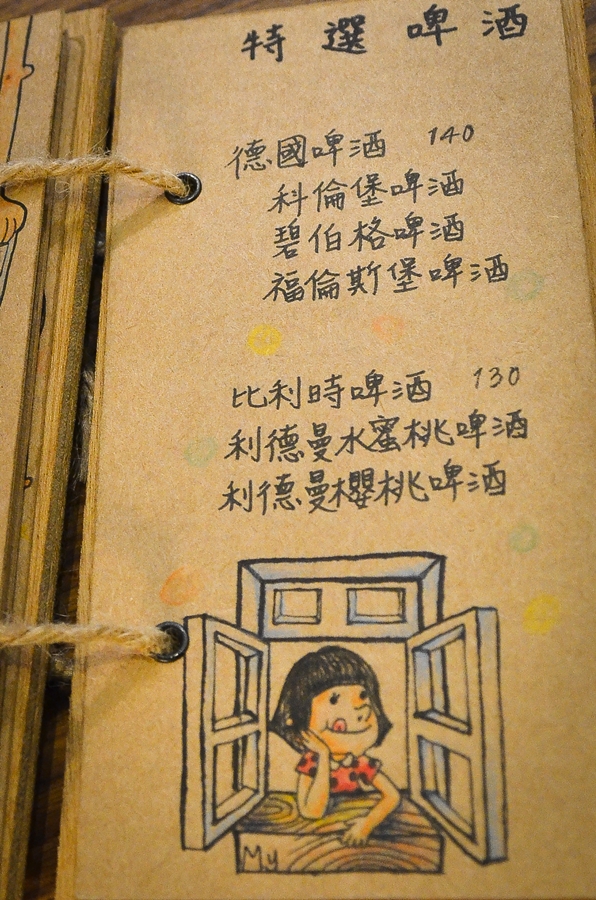 特選啤酒
德國啤酒 140
科倫堡啤酒
碧伯格啤酒
福倫斯堡啤酒
比利時啤酒 130
利德曼水蜜桃啤酒
利德曼櫻桃啤酒
My